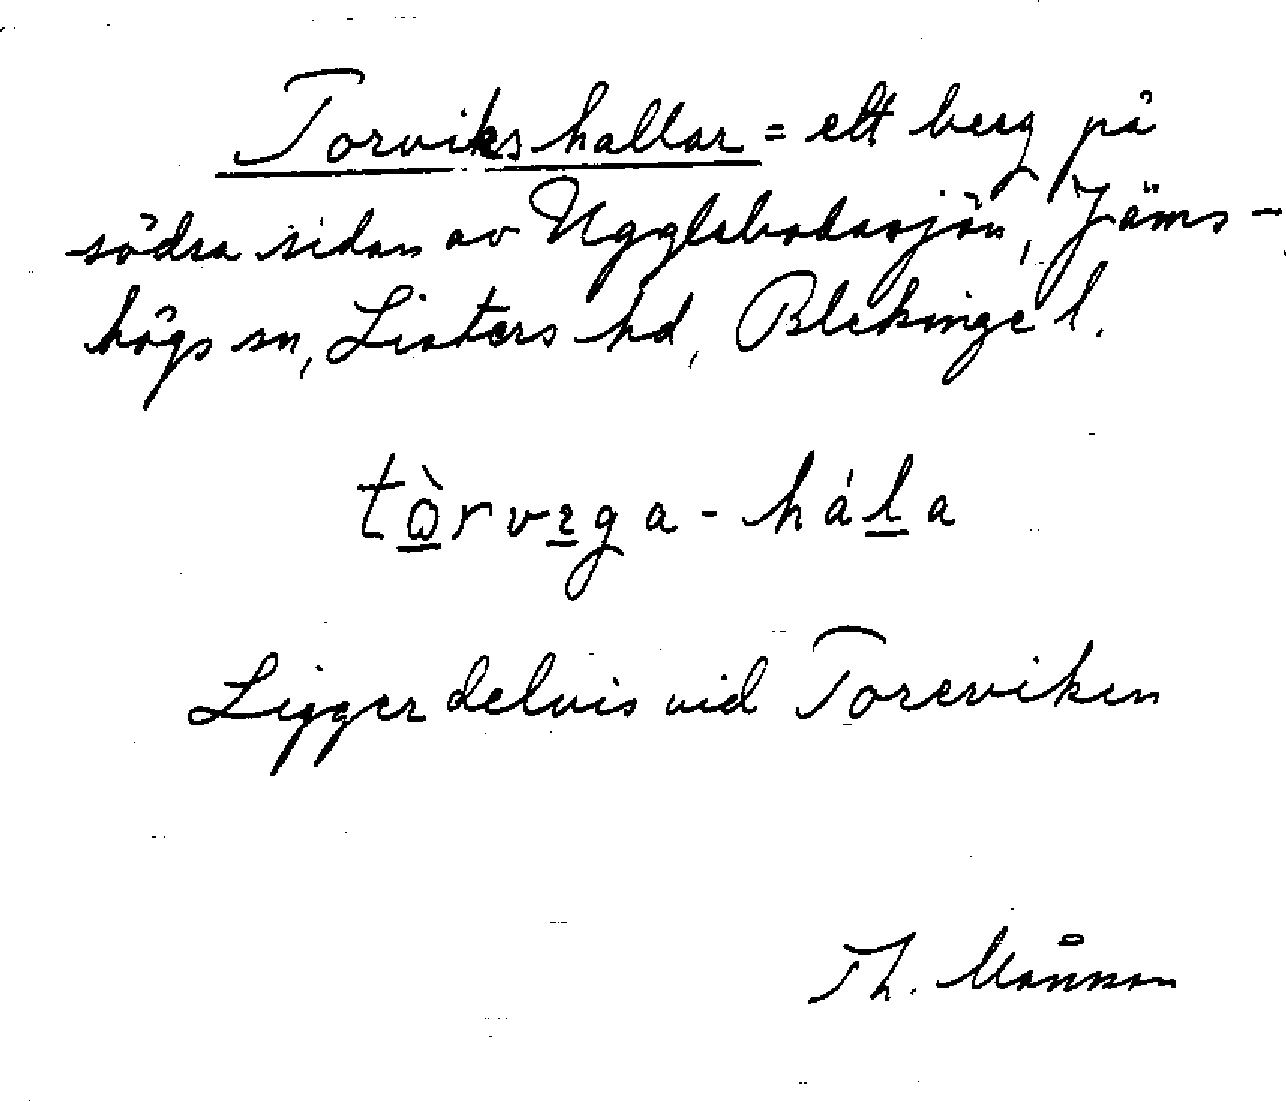 Torvikshallar = ett berg på
södra sidan av Ugglebodasjön, Jäms-
högs sn, Listers hd, Blekinge l.
tὼrvɪga-hála
Ligger delvis vid Toreviken
Th. Månsson